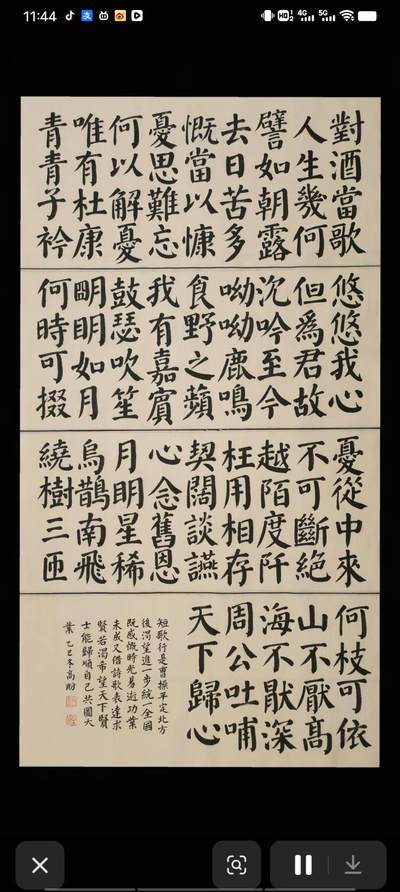 11:44
HD 4G 5G
對酒當歌
人生幾何
譬如朝露
去日苦多
慨當以慷
憂思難忘
何以解憂
唯有杜康
青青子衿
悠悠我心
但爲君故
沉吟至今
呦呦鹿鳴
食野之蘋
我有嘉賓
鼓瑟吹笙
明明如月
何時可掇
憂從中來
不可斷絕
越陌度阡
枉用相存
契闊談讌
心念舊恩
月明星稀
烏鵲南飛
繞樹三匝
何枝可依
山不厭高
海不厭深
周公吐哺
天下歸心
短歌行是曹操平定北方
後渴望進一步統一全國
既感慨時光易逝功業
未成又借詩歌表達求
賢若渴希望天下賢
士能歸順自己共圖大
業 乙巳冬高盼